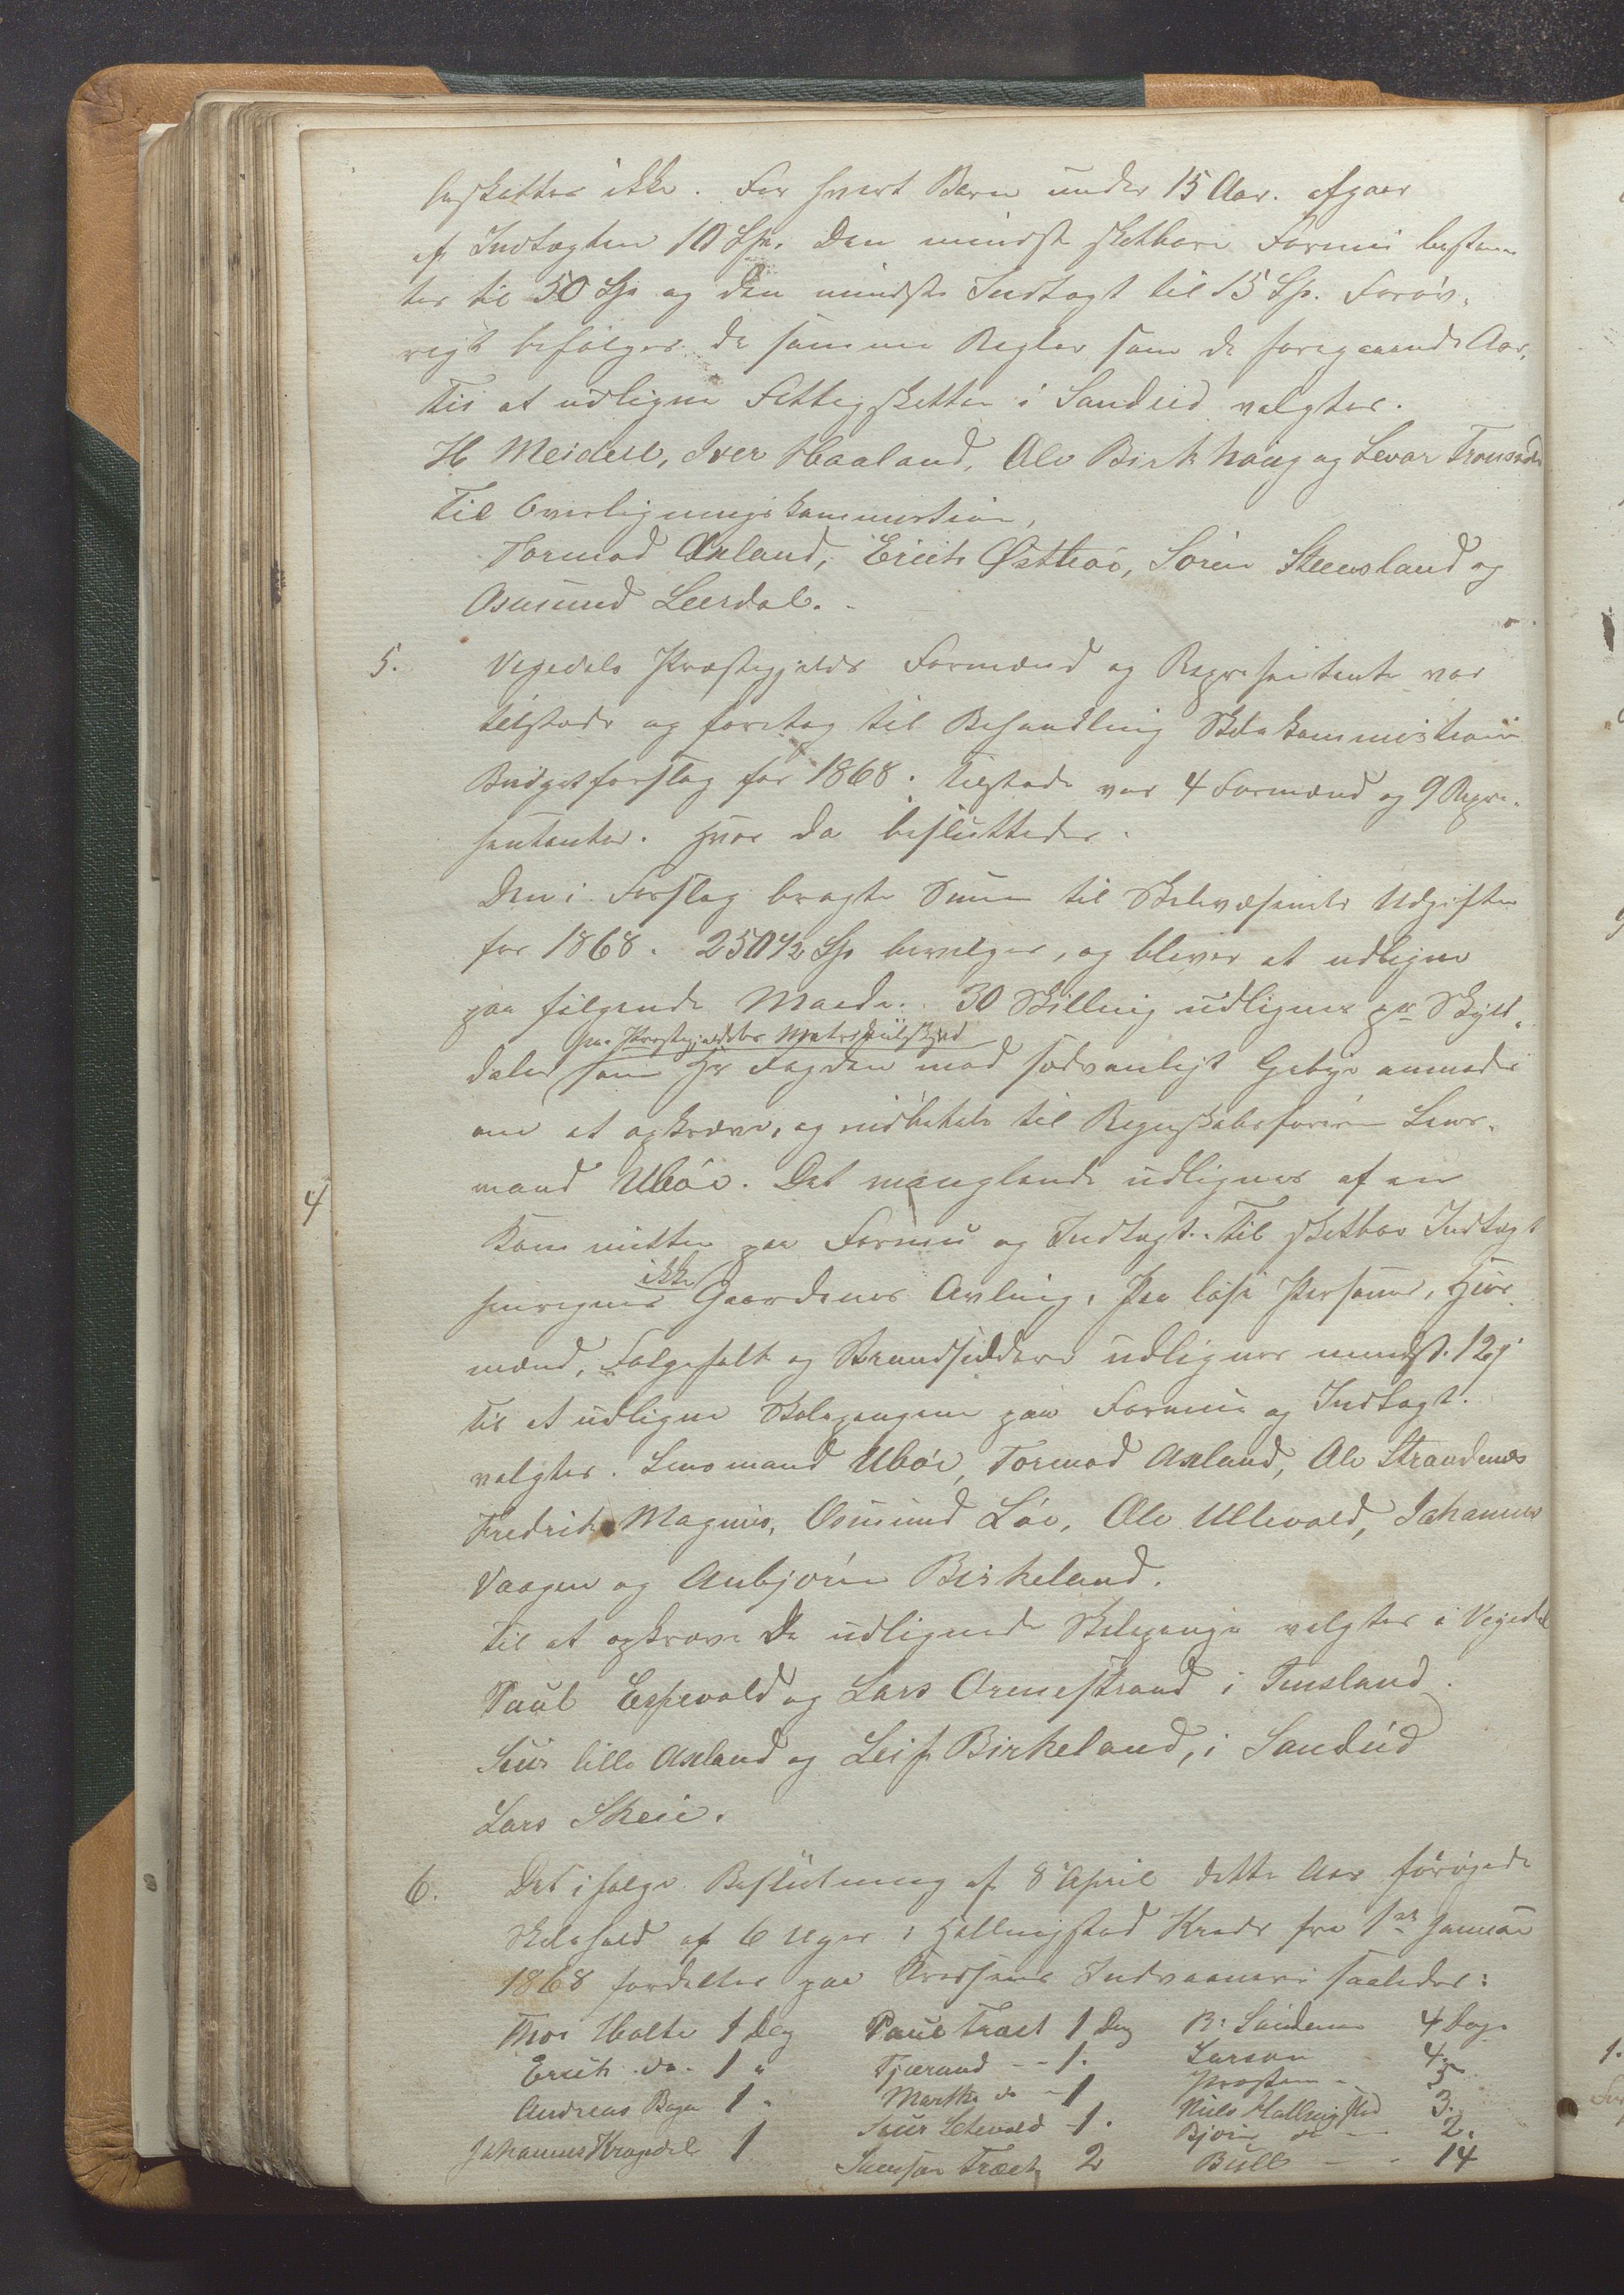 beskattes ikke. For hvert Barn under 15 Aar. afgaar
af Indtægten 10 Sp. Den mindst skatbare Formue bestem
tes til 50 Sp og den mindste Indtægt til 15 Sp. Forøv¬
rigt befølges de samme Regler som de foregaaende Aar.
Til at udligne Fattigskatten i Sandeid valgtes.
H Meidell, Iver Haaland, Ole Birkhoug og Levar
Til Overligningskommission,
Tormod Øxland, Erick Østbøe, Sören Steensland og
Osmund Leerdal.
5. Vigedals Præstegjelds Formænd og Repræsentante var
tilstæde og foretog til Behandling Skolekommissionens
Budgetforslag for 1868. Tilstæde var 4 Formænd og 9 Repræ¬
sentanter. Hvor da besluttedes.
Den i Forslag bragte Sum til Skolevæsenets Udgifter
for 1868. 250½ Sp bevilges, og bliver at udligne
paa følgende Maade. 30 Skilling udlignes pr Skyld¬
paa Præstegjeldets Matrikulskyld
daler som Hr Fogden mod sædvanligt Gebyr anmodes
om at opkræve, og indbetale til Regnskabsfører Lens¬
mand Ubøe. Det manglende udlignes af en
4
Kommitte paa Formue og Indtægt. Til skatbar Indtægt
ikke
henregnes Gaardenes Avling. Paa løse Personer, Huus
mænd, Folgefolk og Strandsiddere udlignes mindst. 12 ß
Til at udligne Skolepengene paa Formue og Indtægt.
valgtes. Lensmand Ubøe, Tormod Axland, Ole Strandenæs
Fredrik Magnus, Osmund Löe, Ole Ullevold, Johannes
Vaagen og Anbjörn Birkeland.
Til at opkræve de udlignede Skolepenge valgtes i Vigedal
Paul Espevold og Lars Ormestrand i Imsland
Siur lille Axland og Leif Birkeland, i Sandeid
Lars Skeie.
6. Det i følge Beslutning af 8 April dette Aar forøgede
Skolehold af 6 Uger i Hallingstad Kreds fra 1ste Januar
1868 fordeltes paa Kredsens Indvaanere saaledes:
Thor Holte 1 Dag Paul Træet 1 Dag B: 4 Dage
Erick do. 1 " Tjerand - - 1. Larson - 4.
Andreas 1 " Marthe do - 1 Præsten - 5
Johannes Kropedal 1 Siur - 1. Niels Hallingstad 3.
Samson Træet 2 Bjørn do - 2.
Bull - - 14